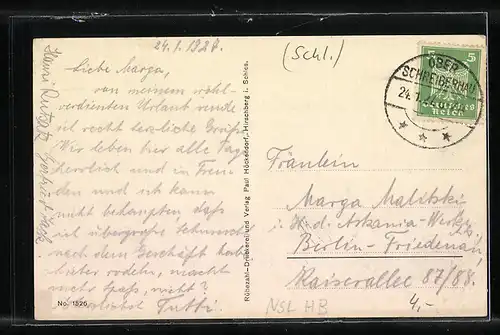 24.1.1928.
(Schl.)
Liebe Marga,
von meinem wohl-
verdienten Urlaub sende
ich recht herzliche Grüße.
Wir leben hier alle Tage
herrlich und in Freu-
den und ich kann
nicht behaupten, daß
ich übergroße Sehnsucht
nach dem Geschäft habe.
rodeln, macht
mehr Spaß, nicht?
Tutti.
No. 1526
Rübezahl-Druckerei und Verlag Paul Höckendorf, Hirschberg i. Schles.
5
Deutsches
Reich
OBER
SCHREIBERHAU
24.1.
Fräulein
Marga Malitski
i. Hd. Askania-Werke
Berlin-Friedenau
Kaiserallee 87/88.
NSL HB
4,-